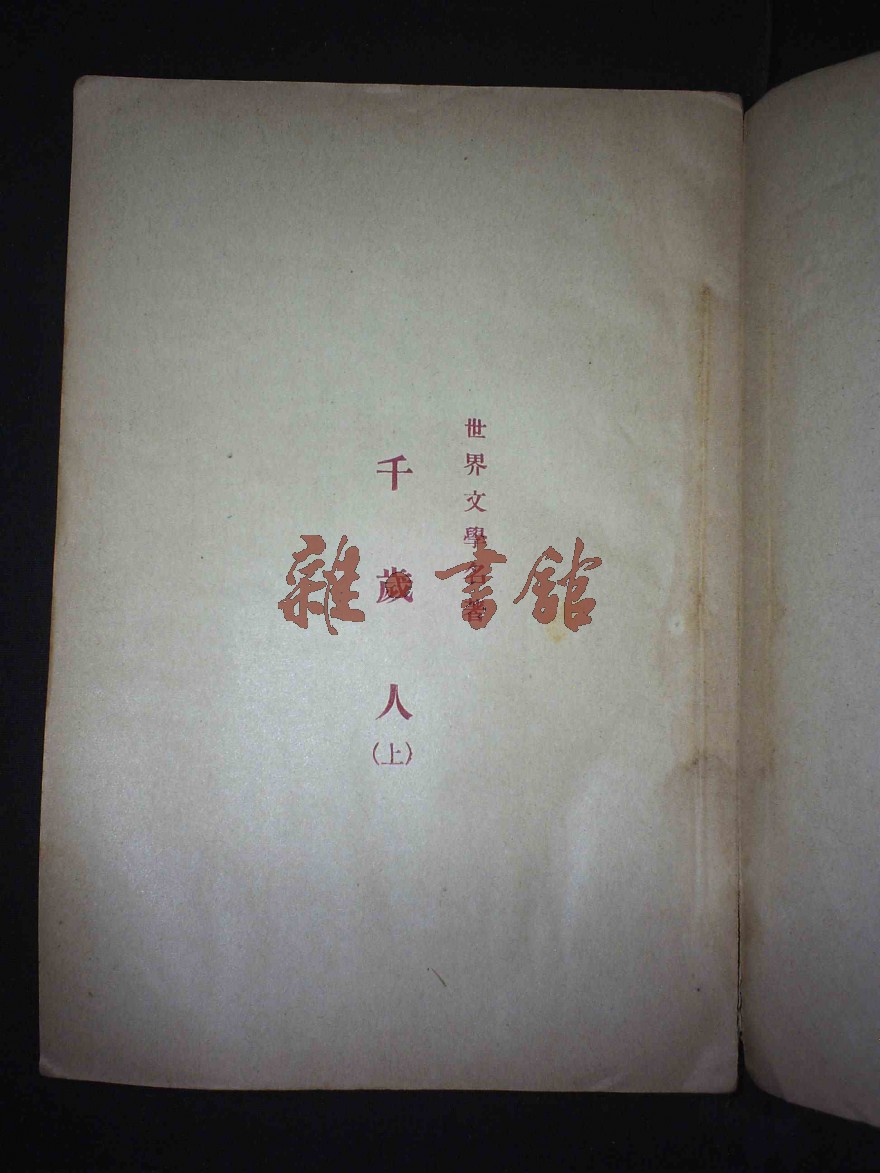 世界文學名著
千歲人
(上)
雜書館